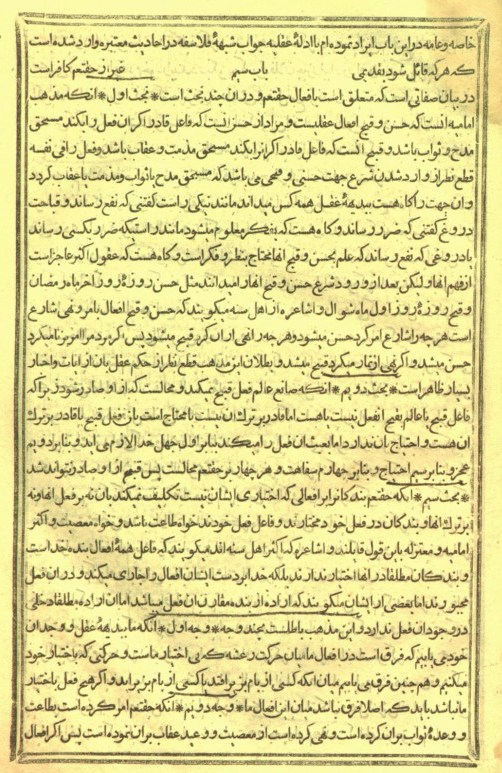 خاصه و عامه در این باب ایراد نموده ام با ادلهٔ عقلیه جواب شبههٔ فلاسفه در احادیث معتبره وارد شده است
که هر که قائل شود بقدیمی غیر از حقتعم کافر است باب سیم
در بیان صفاتی است که متعلق است بافعال حقتعم و در ان چند بحث است * بحث اول * انکه مذهب
امامیه انست که حسن و قبح افعال عقلیست و مراد از حسن انست که فاعل قادر اگر ان فعل را بکند مستحق
مدح و ثواب باشد و قبیح انست که فاعل قادر اگر انرا بکند مستحق مذمت و عقاب باشد و فعل را فی نفسه
قطع نظر از وارد شدن شرع جهت حسنی و قبحی می باشد که مستحق مدح یا ثواب و مذمت یا عقاب گردد
و ان جهت را گاه هست بدیهه عقل همه کس میداند مانند نیکی راست گفتنی که نفع رساند و قباحت
دروغ گفتنی که ضرر رساند و گاه هست که بفکر معلوم میشود مانند راستیکه ضرر بکسی رساند
یا دروغی که نفع رساند که علم بحسن و قبح انها محتاج بنظر و فکر است و گاه هست که عقول اکثر عاجز است
از فهم انها و لیکن بعد از ورود شرع حسن و قبح انها را میدانند مثل حسن روزهٔ روز اخر ماه رمضان
و قبح روزهٔ روز اول ماه شوال و اشاعره از اهل سنه میگویند که حسن و قبح افعال بامر و نهی شارع
است هر چه را شارع امر کرد حسن میشود و هر چه را نهی از ان کرد قبیح میشود پس اگر مردم را امر بزنا میکرد
حسن میشد و اگر نهی از نماز میکرد قبیح میشد و بطلان این مذهب قطع نظر از حکم عقل بان از ایات و اخبار
بسیار ظاهر است * بحث دویم * انکه صانع عالم فعل قبیح نمیکند و محالست که از او صادر شود زیرا که
فاعل قبیح یا عالم بقبح انفعل نیست یا هست اما قادر بر ترک ان نیست یا محتاج است بان فعل قبیح یا قادر بر ترک
ان هست و احتیاج بان ندارد اما بعبث ان فعل را میکند بنابر اول جهل خدا لازم می اید و بنابر دویم
عجز و بنابر سیم احتیاج و بنابر چهارم سفاهت و هر چهار بر حقتعم محالست پس قبیح از او صادر نتواند شد
* بحث سیم * انکه حقتعم بندگانرا بر افعالی که اختیاری ایشان نیست تکلیف نمیکند بان نه بر فعل انها و نه
بر ترک انها و بندگان در فعل خود مختارند و فاعل فعل خودند خواه طاعت باشد و خواه معصیت و اکثر
امامیه و معتزله باین قول قایلند و اشاعره که اکثر اهل سنه اند میگویند که فاعل همهٔ افعال بنده خداست
و بندگان مطلقا در انها اختیار ندارند بلکه خدا بر دست ایشان افعال را جاری میکند و در ان فعل
مجبورند اما بعضی از ایشان میگویند که اراده از بنده مقارن ان فعل میباشد اما ان اراده مطلقا دخلی
در وجود ان فعل ندارد و این مذهب باطلست بچند وجه * وجه اول * انکه ما بدیههٔ عقل و وجدان
خود می یابیم که فرق است در افعال ما میان حرکت رعشه که بی اختیار ماست و حرکتی که باختیار خود
میکنیم و همچنین فرق می یابیم میان انکه کسی از بام بزیر افتد یا کسی از بام بزیر اید و اگر هیچ فعل باختیار
ما نباشد باید که اصلا فرق نباشد میان این افعال ما * وجه دویم * انکه حقتعم امر کرده است بطاعت
و وعدهٔ ثواب بران کرده است و نهی کرده است از معصیت و وعید عقاب بران نموده است پس اگر افعال